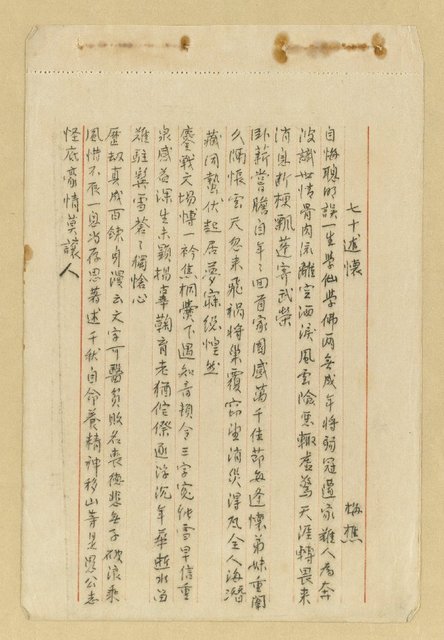 七十述懷
梅樵
自悔聰明誤一生學仙學佛兩無成年將弱冠遭家難人為奔
波識世情骨肉流離空洒淚風雲險惡輒虛驚天涯轉畏來
消息斷梗飄蓬寄武榮
臥薪嘗膽自年々回首家園感萬千佳節每逢懷弟妹重闈
久隔悵雲天忽來飛禍將巢覆窃望消災得瓦全人海潛
藏同蟄伏起居夢寐總惶然
鏖戰文場博一衿焦桐爨下遇知音頻令三字冤能雪早信重
泉感益深生未顯揚辜鞠育老猶侘傺逐浮沉年華逝水留
難駐鬢雪蒼々獨愴心
歷劫真成百鍊身漫云文字可醫貧敗名喪德悲無子破浪乘
風惜不辰一息尚存思著述千秋自命養精神移山莫是愚公志
怪底豪情莫讓人